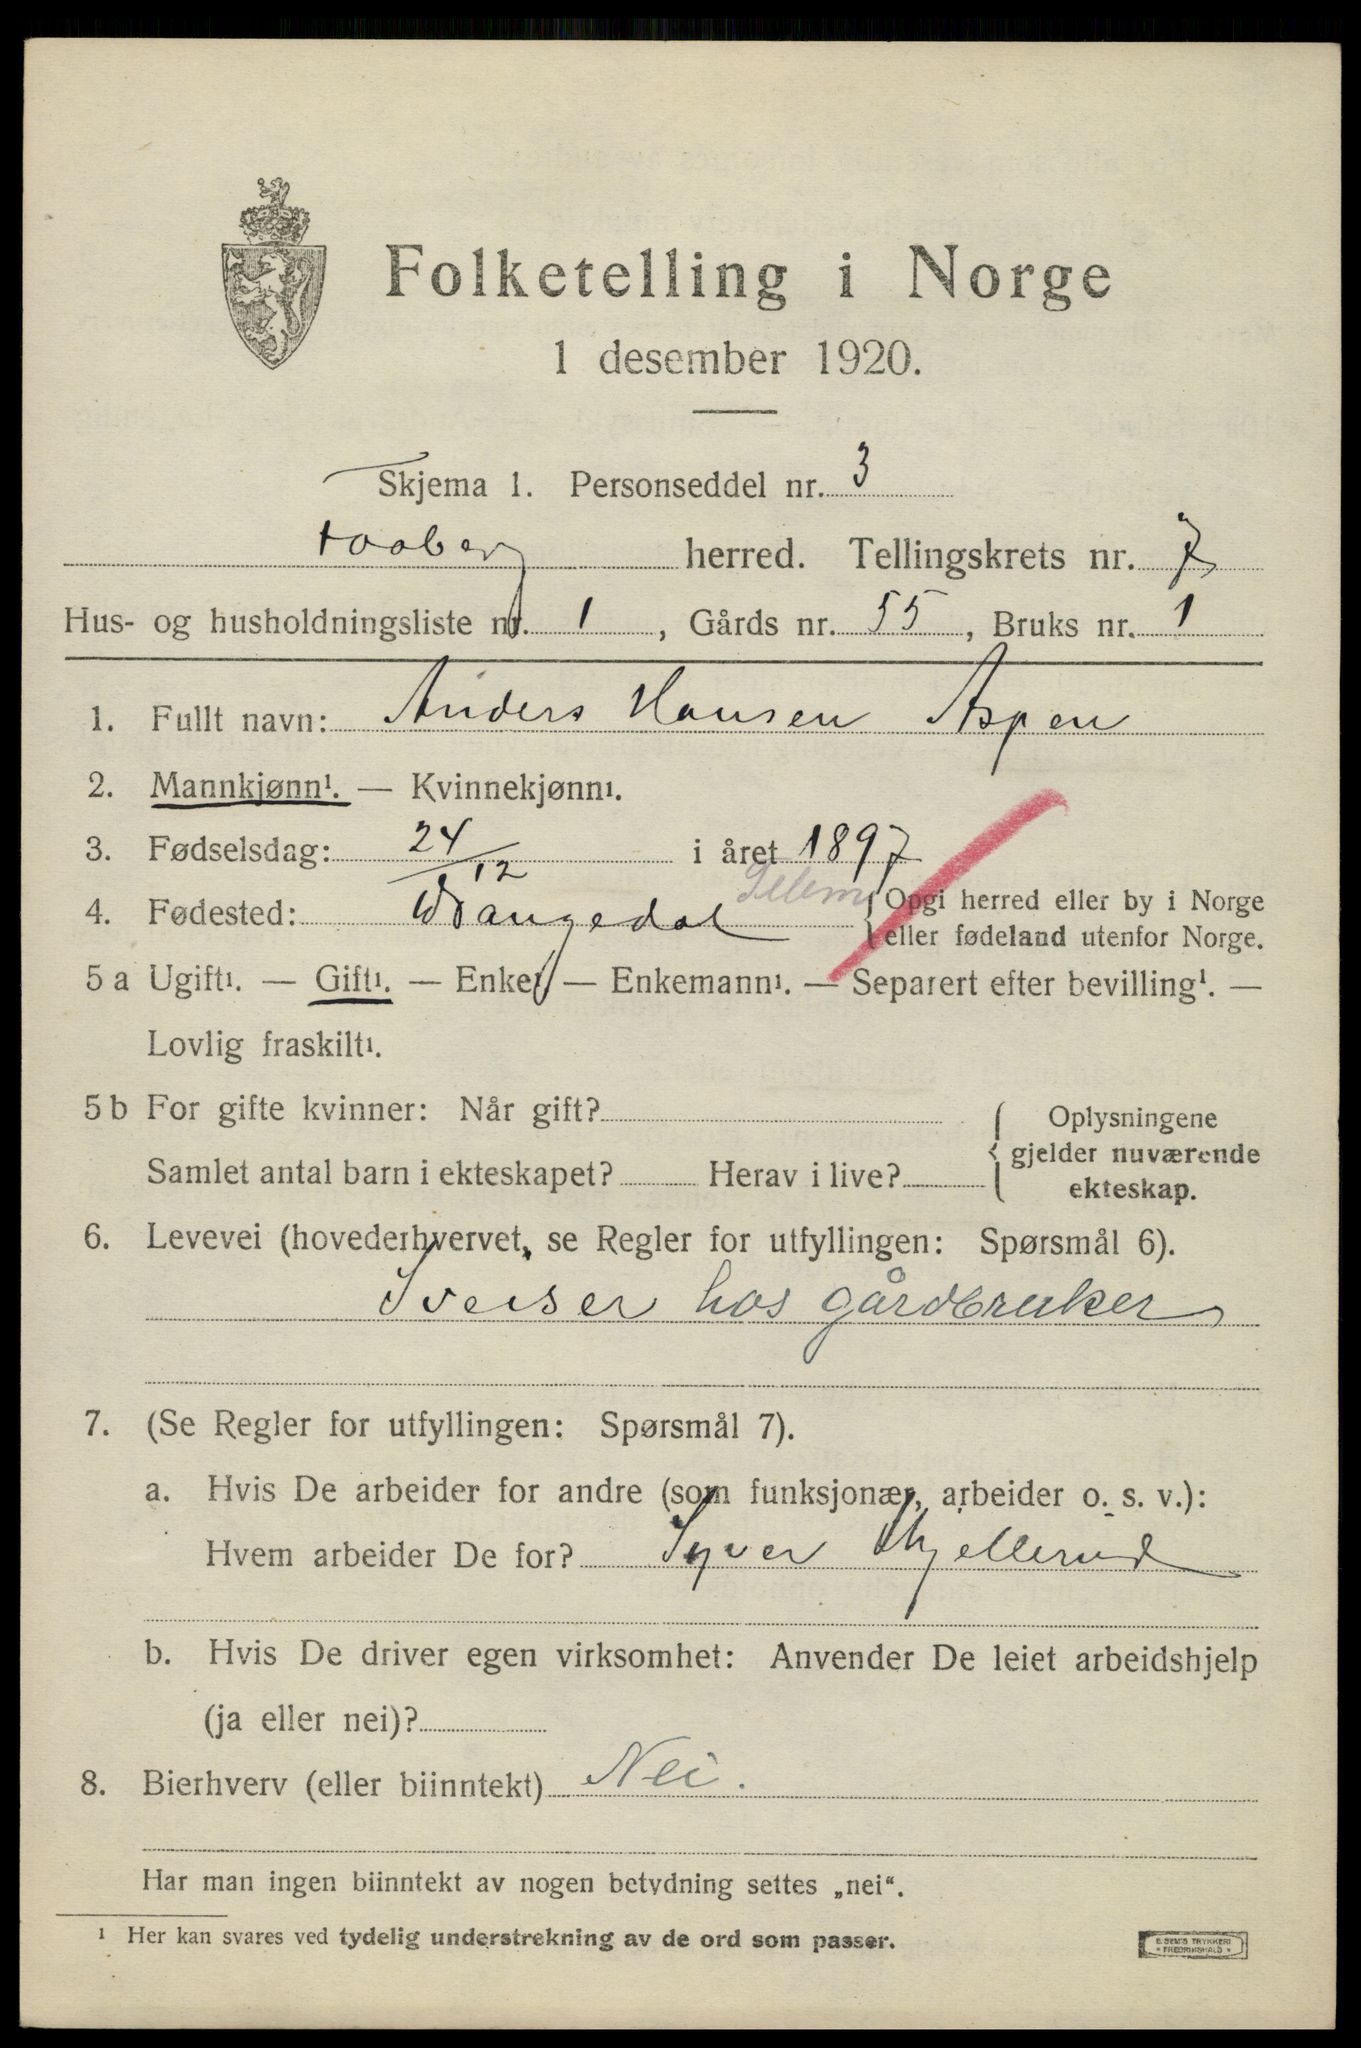 Folketelling i Norge
1 desember 1920.
Skjema 1. Personseddel nr. 3
Faaberg herred. Tellingskrets nr. 7
Hus- og husholdningsliste nr. 1, Gårds nr. 55, Bruks nr. 1
1. Fullt navn: Anders Hansen Aspen
2. Mannkjønn¹. — Kvinnekjønn¹.
3. Fødselsdag: 24/12 i året 1897
4. Fødested: Drangedal Telem. {Opgi herred eller by i Norge
eller fødeland utenfor Norge.
5 a Ugift¹. — Gift¹. — Enke¹. — Enkemann¹. — Separert efter bevilling¹. —
Lovlig fraskilt¹.
5 b For gifte kvinner: Når gift?
Samlet antal barn i ekteskapet? Herav i live?
{Oplysningene
gjelder nuværende
ekteskap.
6. Levevei (hovederhvervet, se Regler for utfyllingen: Spørsmål 6).
Sveiser hos gårdbruker
7. (Se Regler for utfyllingen: Spørsmål 7).
a. Hvis De arbeider for andre (som funksjonær, arbeider o. s. v.):
Hvem arbeider De for? Syver Skjellerud
b. Hvis De driver egen virksomhet: Anvender De leiet arbeidshjelp
(ja eller nei)?
8. Bierhverv (eller biinntekt) Nei.
Har man ingen biinntekt av nogen betydning settes „nei“.
¹ Her kan svares ved tydelig understrekning av de ord som passer.
E. SEM'S TRYKKERI
* FREDRIKSHALD *